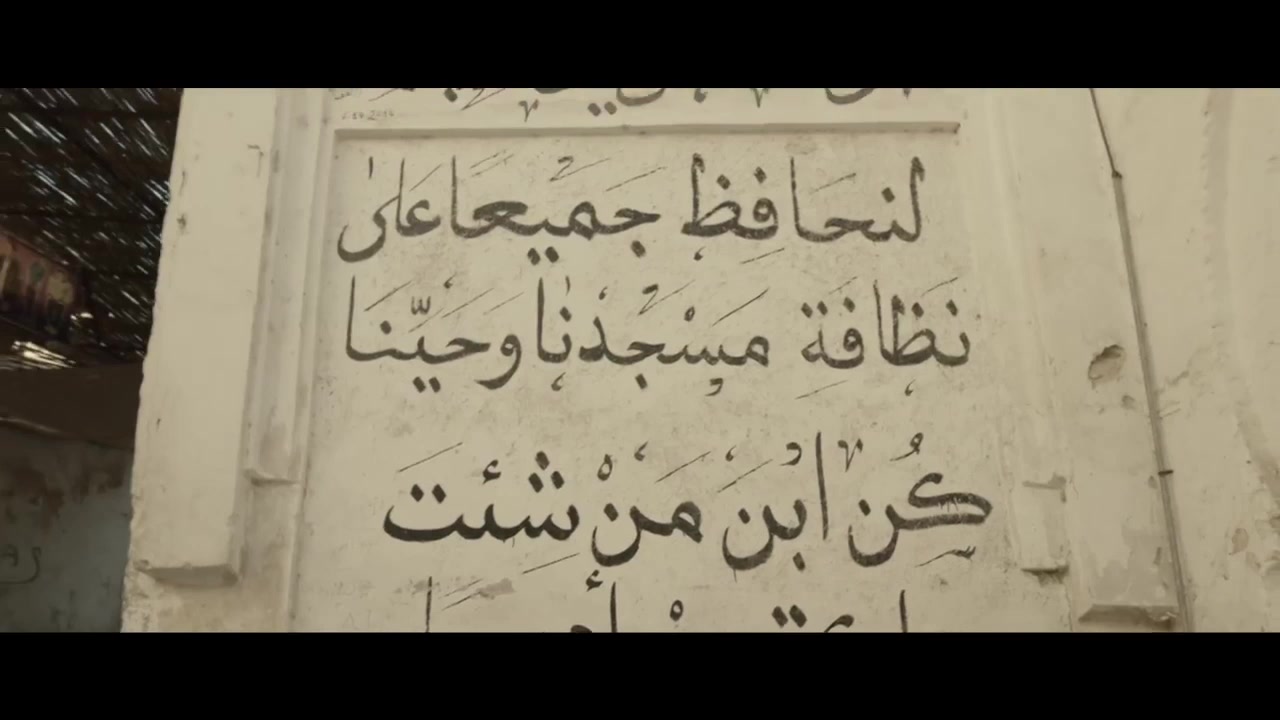 لنحافظ جَميعًا على
نَظافَةِ مَسْجِدنا وَحَيّنا
كُن ابْنَ مَنْ شِئتَ